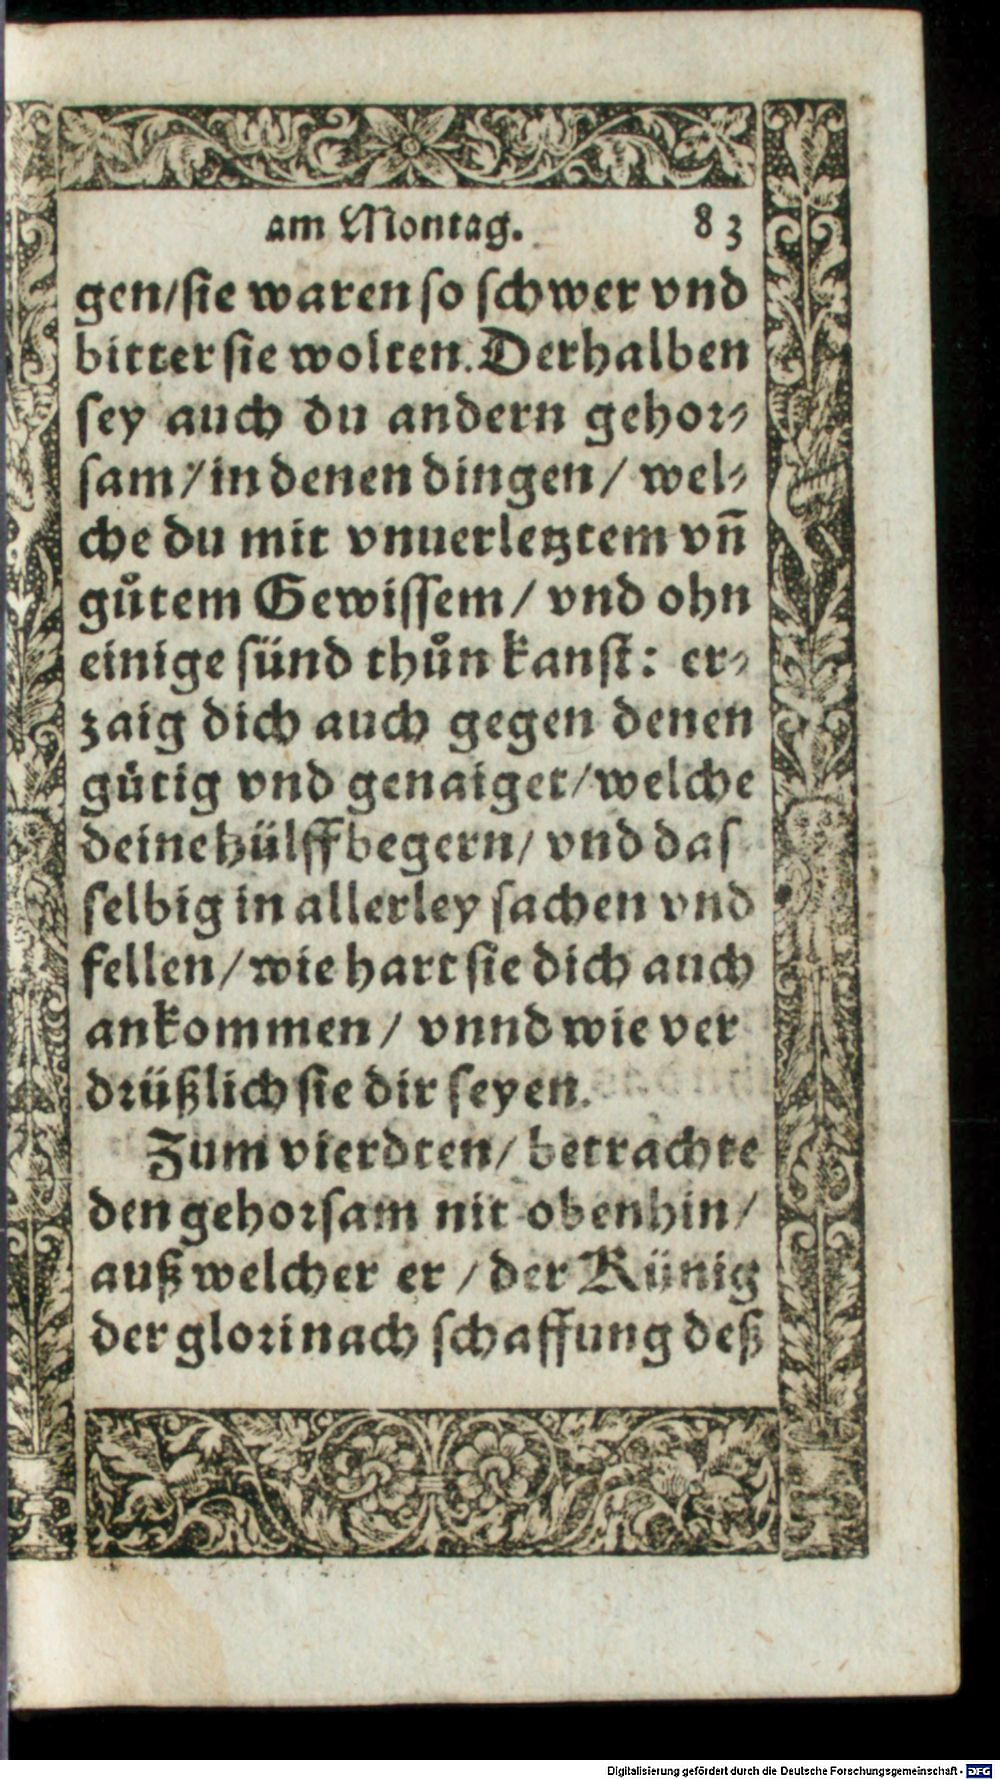 am Montag. 83
gen/sie waren so schwer vnd
bitter sie wolten. Derhalben
sey auch du andern gehor⸗
sam/in denen dingen/ wel⸗
che du mit vnuerletztem vn̄
gůtem Gewissem/ vnd ohn
einige sünd thůn kanst: er⸗
zaig dich auch gegen denen
gütig vnd genaiget/welche
deine hülff begern/ vnd das
selbig in allerley sachen vnd
fellen/wie hart sie dich auch
ankommen/ vnnd wie ver
drüßlich sie dir seyen.
Zum vierdten/ betrachte
den gehorsam nit obenhin/
auß welcher er / der Künig
der glori nach schaffung deß
Digitalisierung gefördert durch die Deutsche Forschungsgemeinschaft - DFG